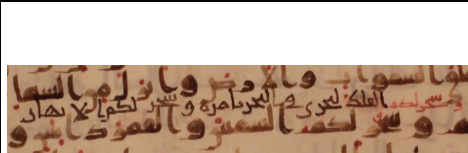 السموات والارض وانزل من السما
وسخر لكم الفلك لتجري في البحر بامره و سخر لكم الانهار
و سخر لكم الشمس و القمر دا و